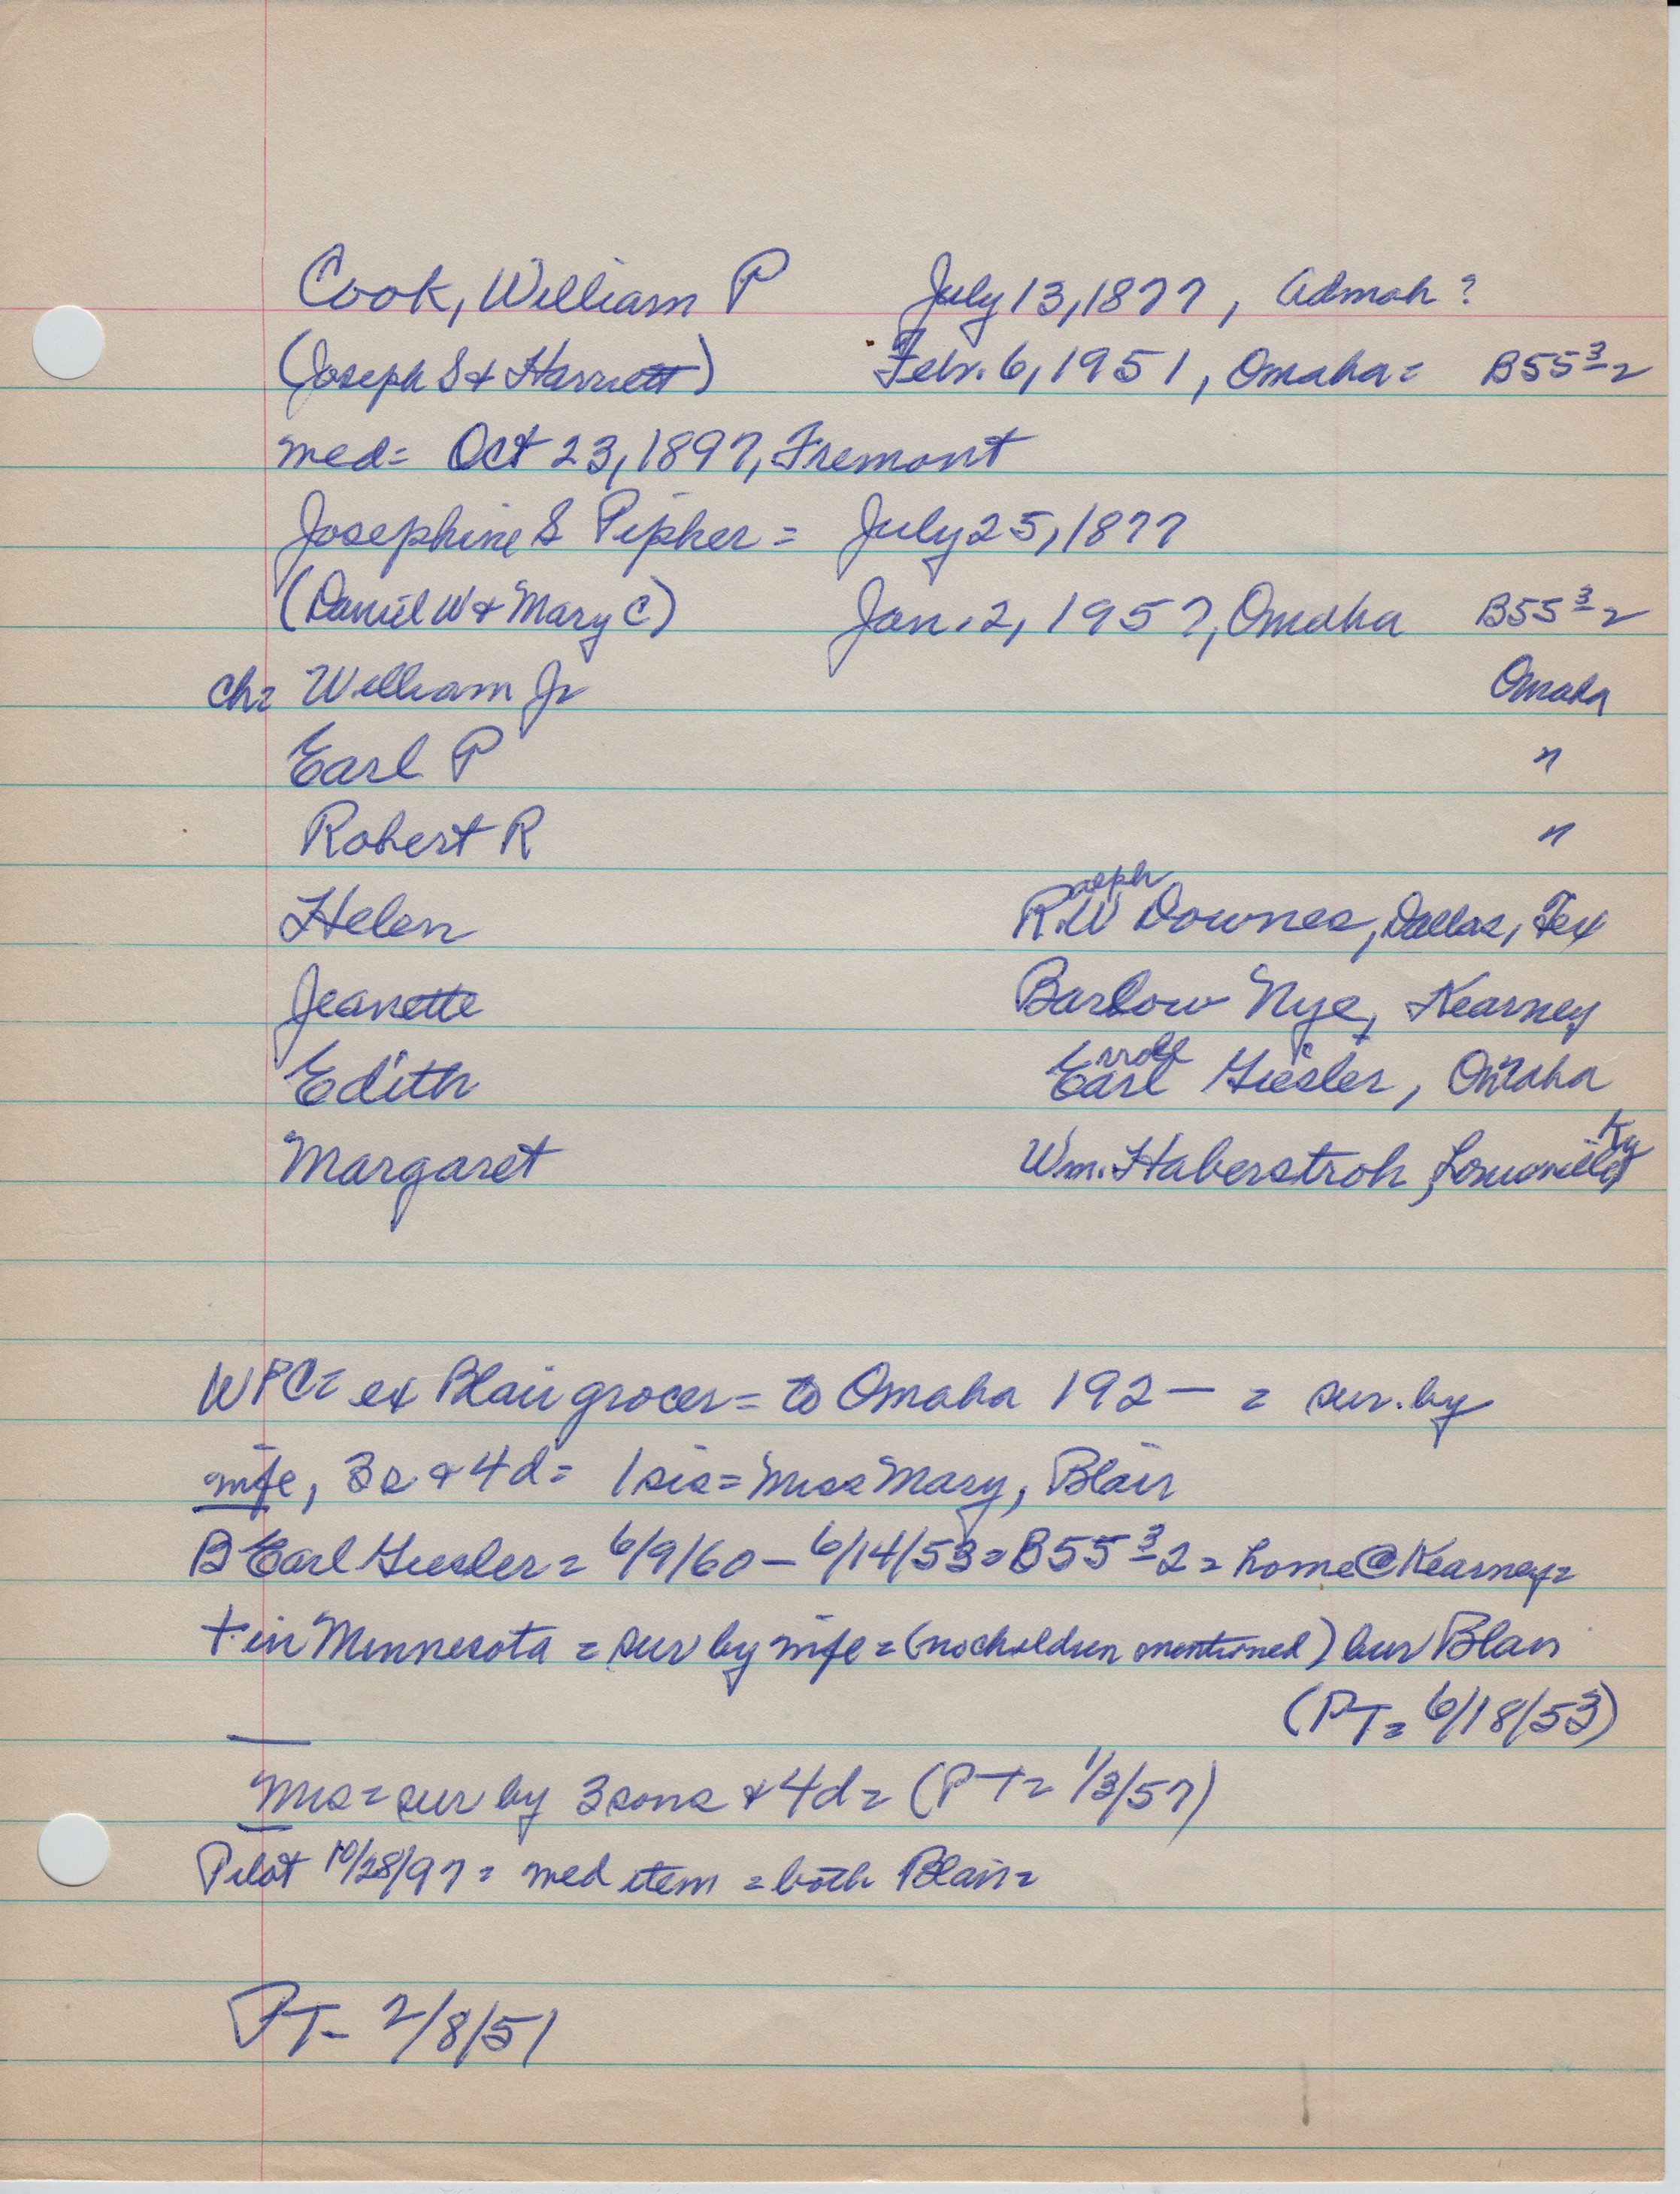 Cook, William P July 13, 1877, Admah?
(Joseph S & Harriett) Febr. 6, 1951, Omaha = B55 3-2
med = Oct 23, 1897, Fremont
Josephine S Pipher = July 25, 1877
(Daniel W & Mary C) Jan. 2, 1957, Omaha B55 3-2
ch = William Jr Omaha
Earl P "
Robert R "
Helen Ralph W Downes, Dallas, Tex
Jeanette Barlow Nye, Kearney
Edith Earl Giesler, Omaha
Margaret Wm. Haberstroh, Louisville Ky
WPC = ex Blair grocer = to Omaha 192— = sur. by
wife, 3s & 4d = 1 sis = Miss Mary, Blair
B Earl Giesler = 6/9/60 – 6/14/53 = B55 3-2 = home @ Kearney =
+ in Minnesota = sur by wife = (no children mentioned) bur Blair
(PT = 6/18/53)
Mrs = sur by 3 sons & 4d = (PT = 1/3/57)
Pilot 10/28/97 = med item = both Blair =
PT – 2/8/51